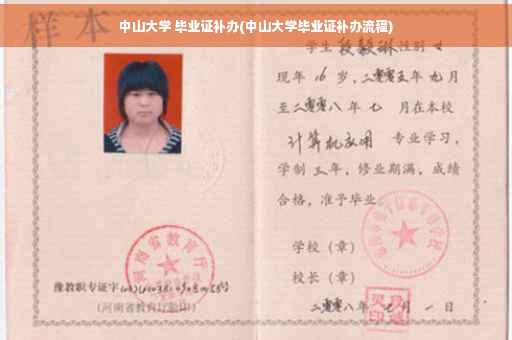 中山大学 毕业证补办(中山大学毕业证补办流程)
样本
学生 段毅琳 性别 女
现年 16 岁,二零零五年 九 月
至二零零八年 七 月在本校
计算机应用 专业学习,
学制 三 年,修业期满,成绩
合格,准予毕业
学校(章)
校长(章)
二零零八年 七 月 一 日
河南省教育厅
豫教职专证字
(河南省教育厅验印)